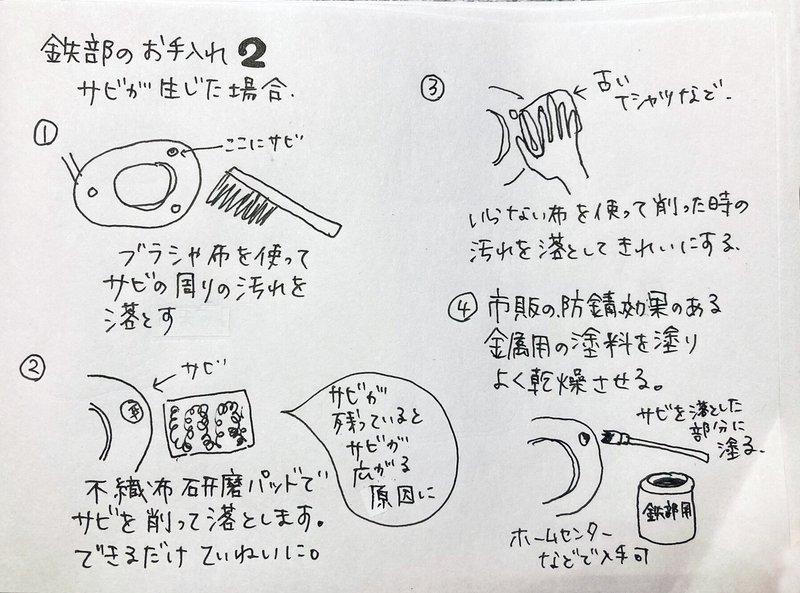 鉄部のお手入れ2
サビが生じた場合.
①
ここにサビ
ブラシや布を使って
サビの周りの汚れを
落とす
②
サビ
サビが
残っていると
サビが
広がる
原因に
不織布研磨パッドで
サビを削って落とします。
できるだけていねいに。
③
古い
Tシャツなど.
いらない布を使って削った時の
汚れを落としてきれいにする.
④ 市販の防錆効果のある
金属用の塗料を塗り
よく乾燥させる。
サビを落とした
部分に
塗る.
鉄部用
ホームセンター
などで入手可